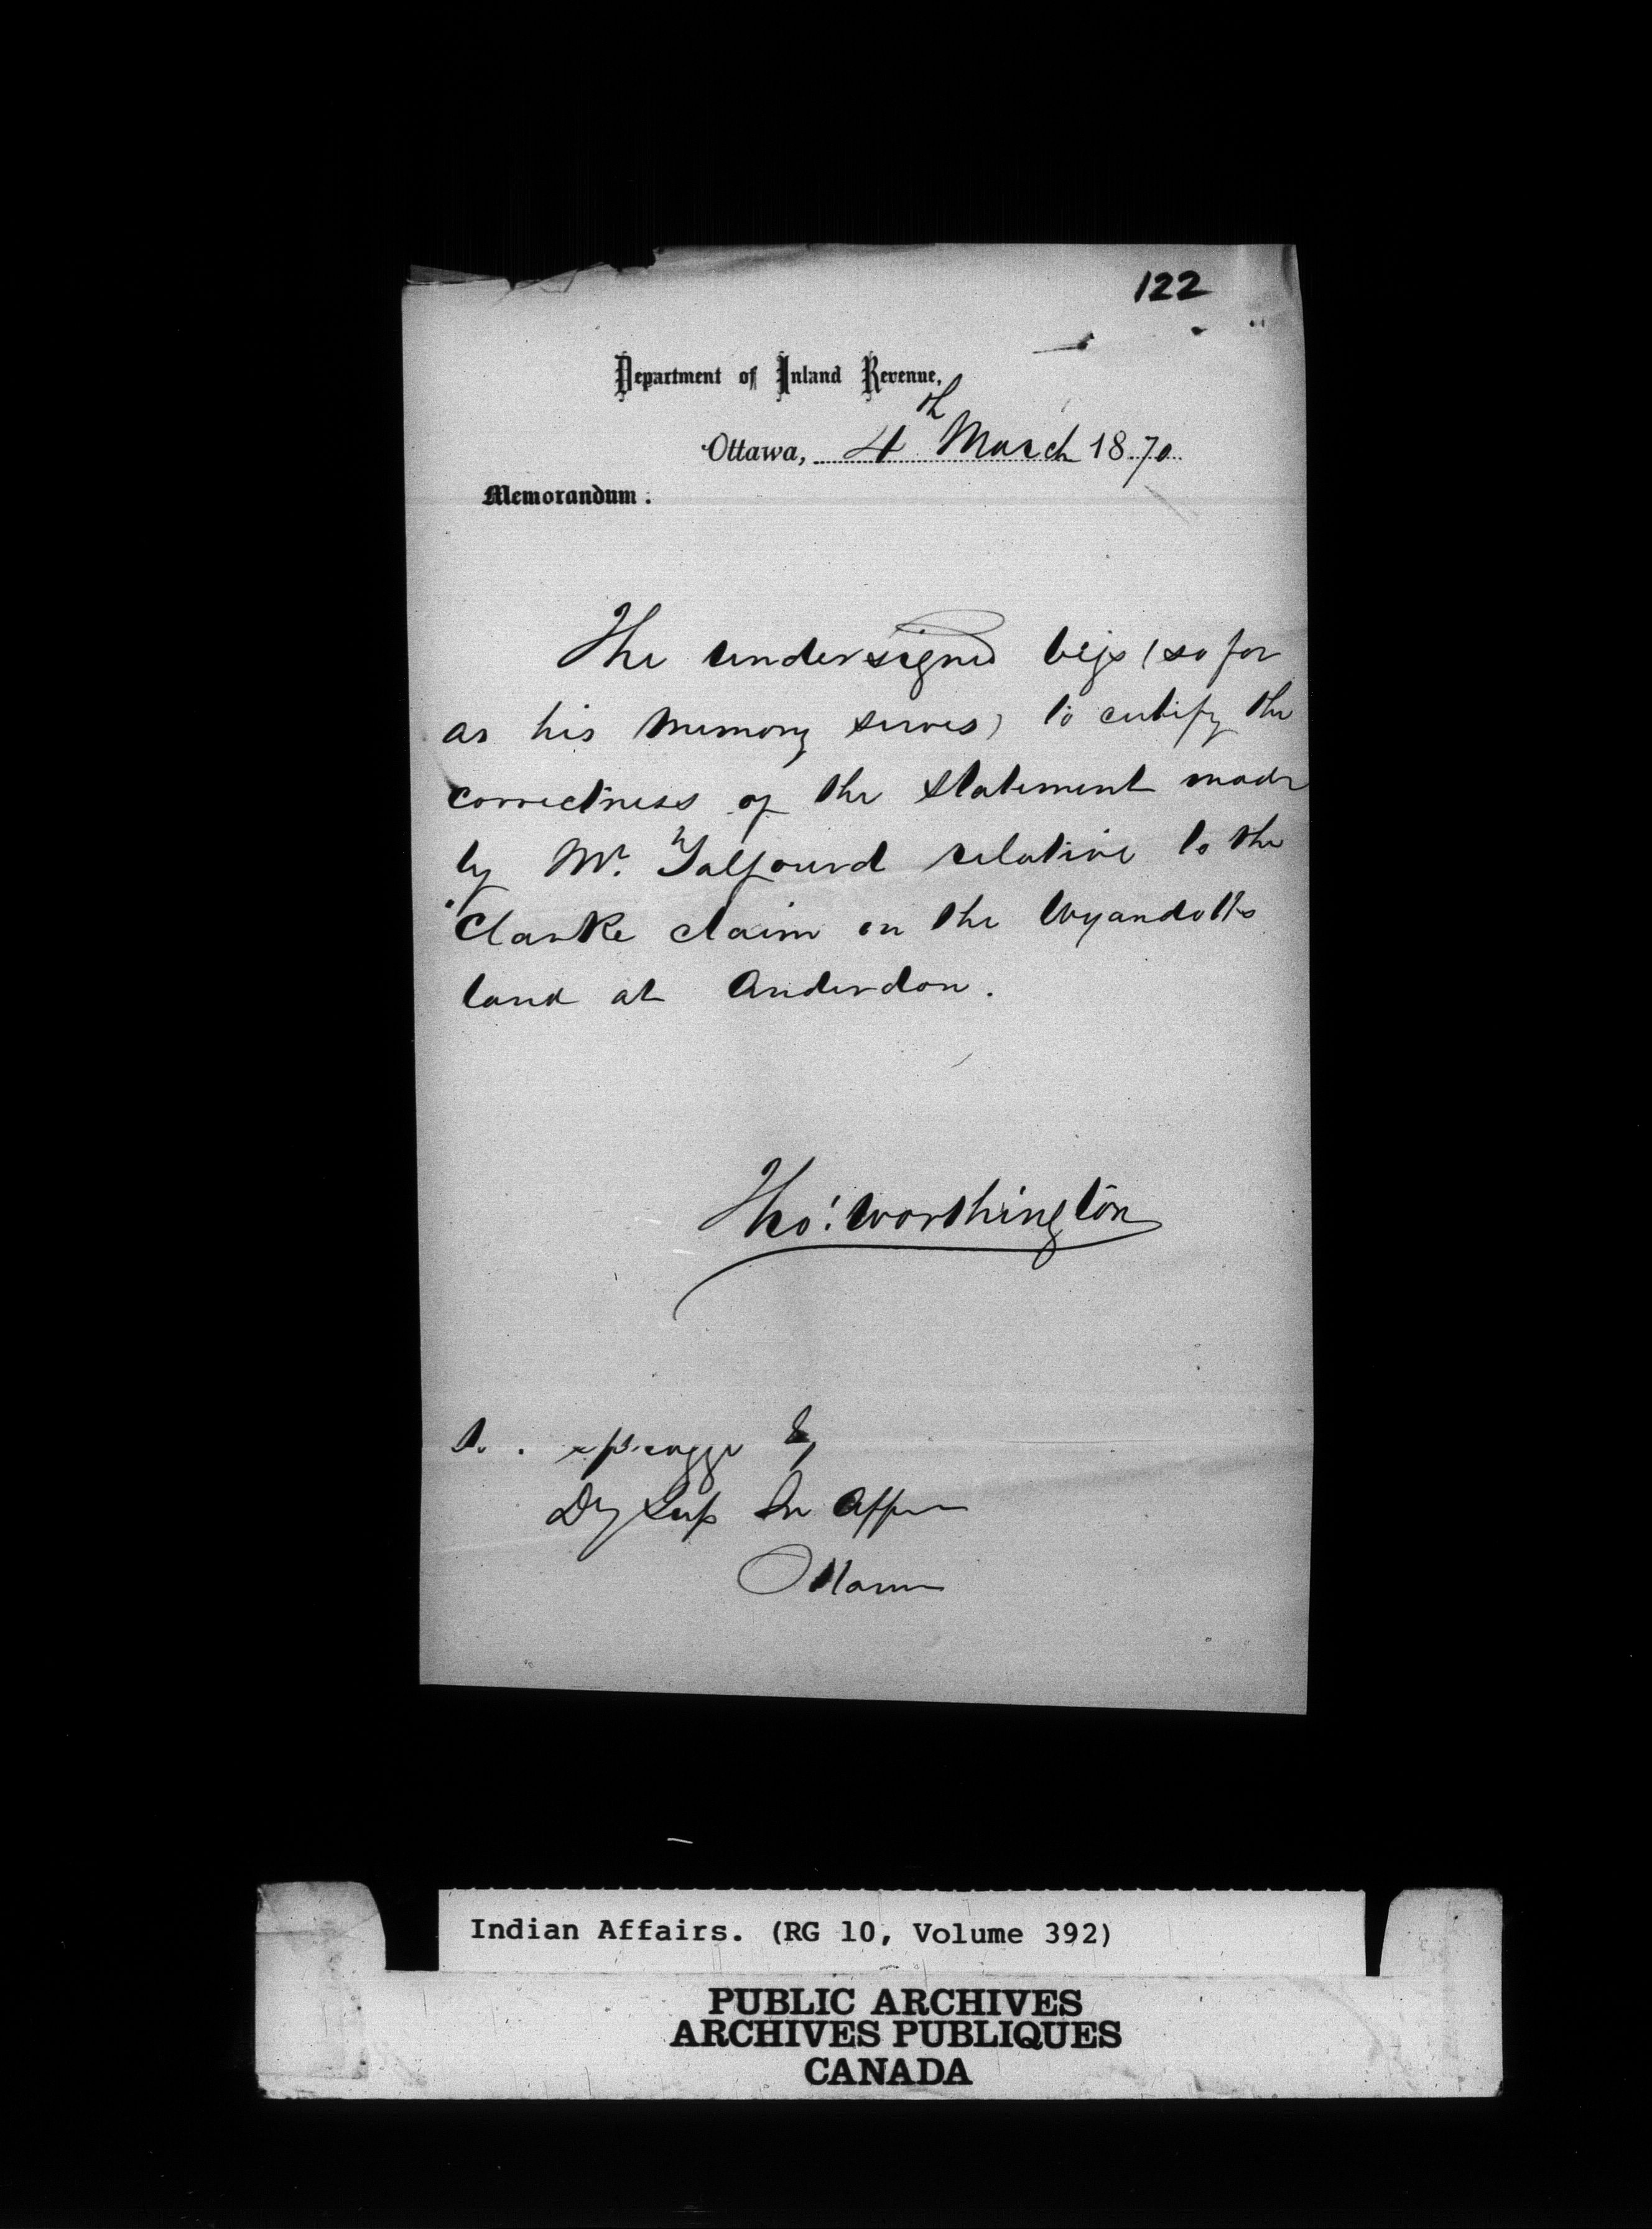 122
Department of Inland Revenue,
Ottawa, 4th March 1870
Memorandum.
The undersigned begs (so far
as his memory serves) to certify the
correctness of the statement made
by Mr. Talfourd relative to the
Clarke claim on the Wyandotts
land at Anderdon.
Tho: Worthington
Spragge Es
Dy Sup In Affrs
Ottawa
Indian Affairs. (RG 10, Volume 392)
PUBLIC ARCHIVES
ARCHIVES PUBLIQUES
CANADA